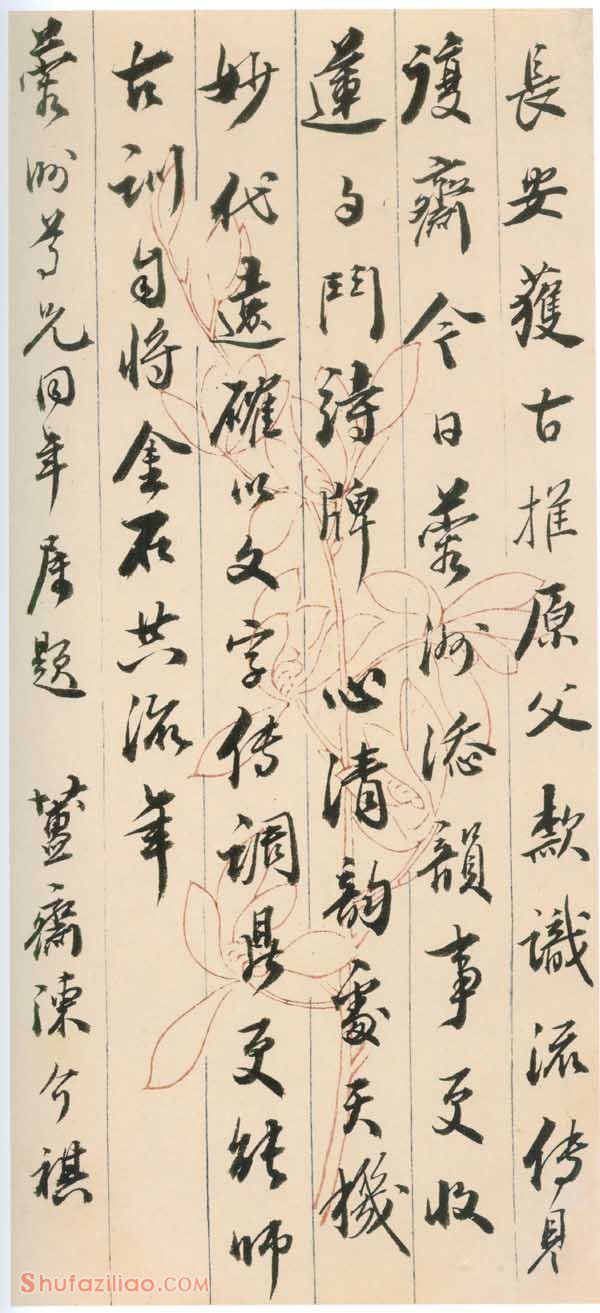 長安獲古推原父款識流傳見
護齋今日蓉洲添韻事更收
蓮勺鬥詩牌心清韵處天機
妙代遠確以文字傳調鼎更能師
古訓自將金石共流年
蓉洲尊兄同年屬題 簠齋陳介祺
Shufaziliao.COM